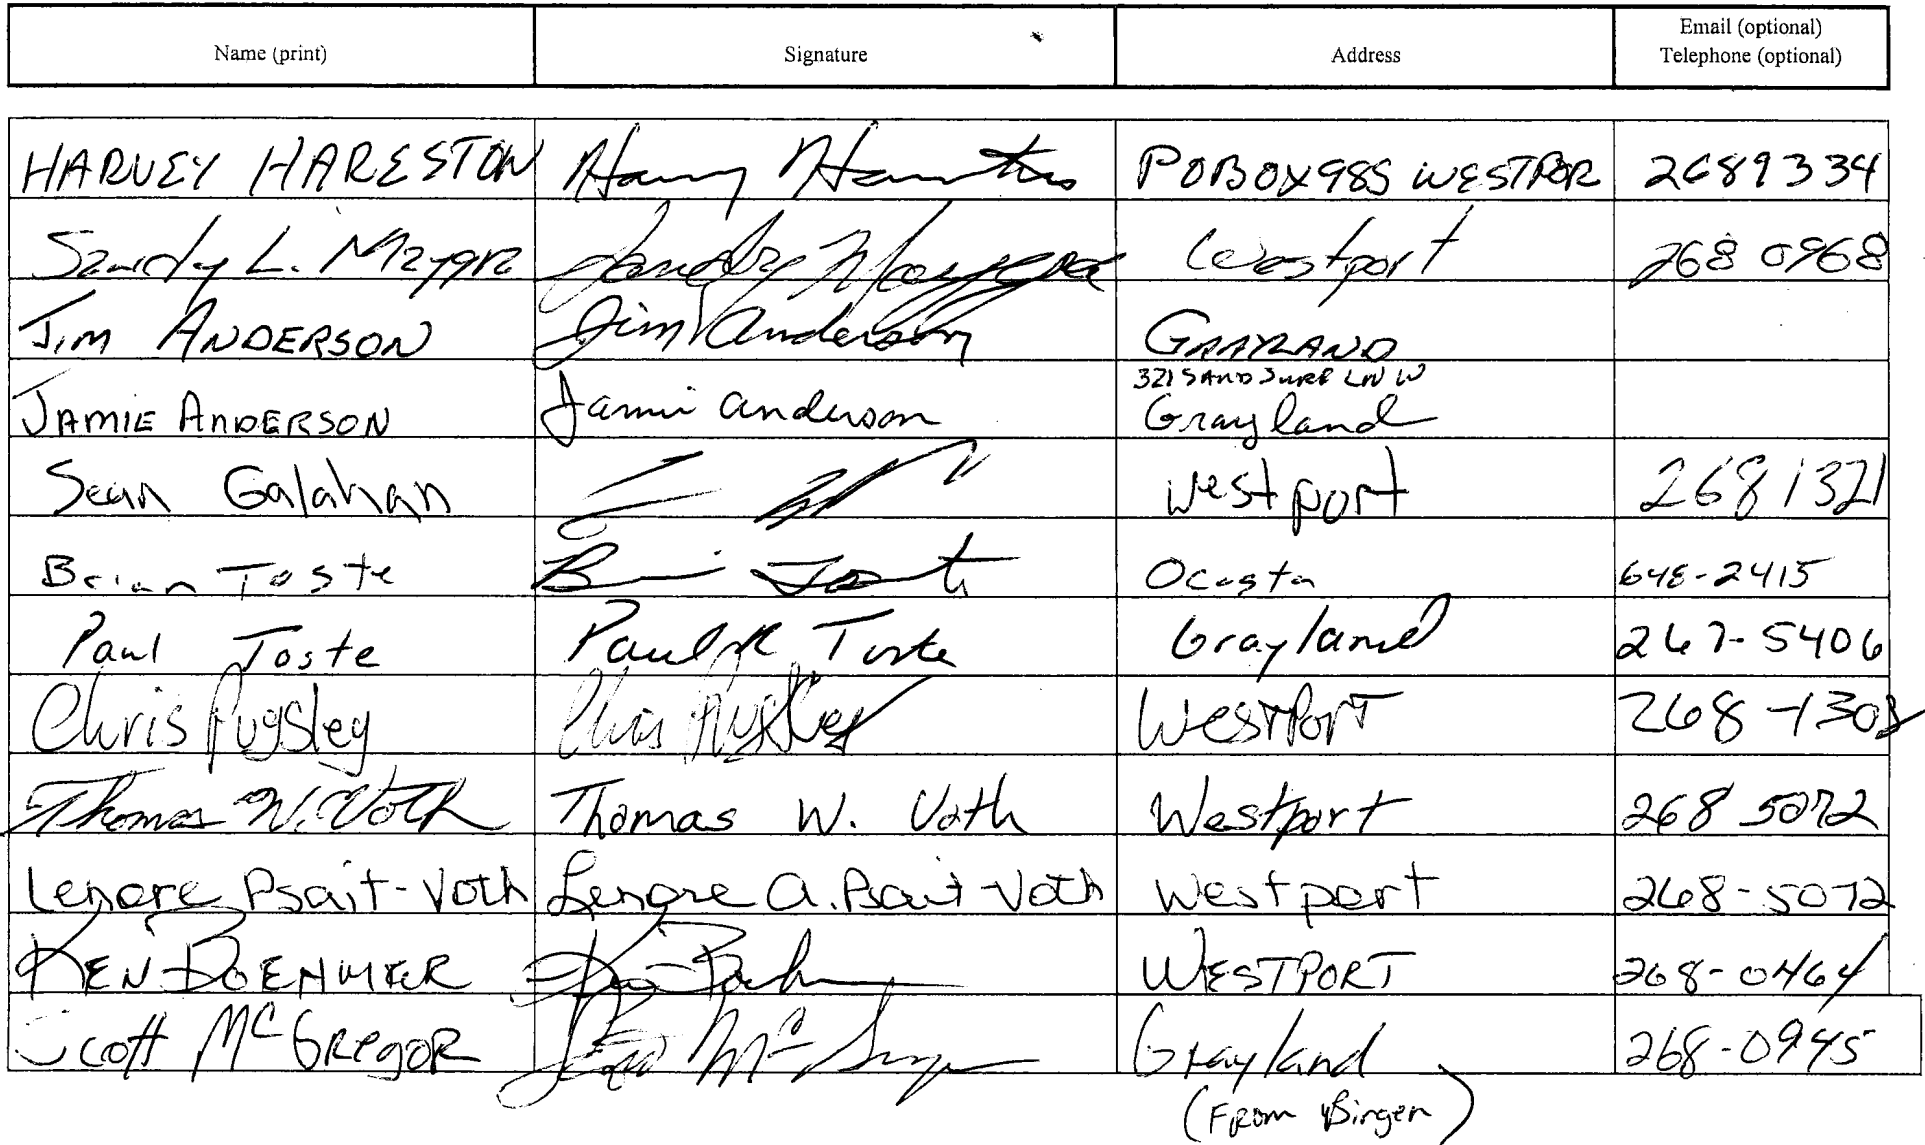 Name (print) Signature Address Email (optional)
Telephone (optional)
HARVEY HARESTON POBOX985 WESTPOR 2689334
Sandy L. Westport 268 0968
JIM ANDERSON Jim Anderson GRAYLAND
321 SAND SURF LN W
JAMIE ANDERSON Jamie Anderson Grayland
Sean Galahan Westport 268 1321
Brian Toste Ocosta 648-2415
Paul Toste Paul R Toste Grayland 267-5406
Chris Pugsley Chris Pugsley WestPort 268-1308
Thomas W. Voth Thomas W. Voth Westport 268 5072
Lenore Psait-Voth Lenore A. Psait-Voth Westport 268-5072
KEN WESTPORT 268-0464
Scott McGregor Grayland 268-0945
(From Birgen)